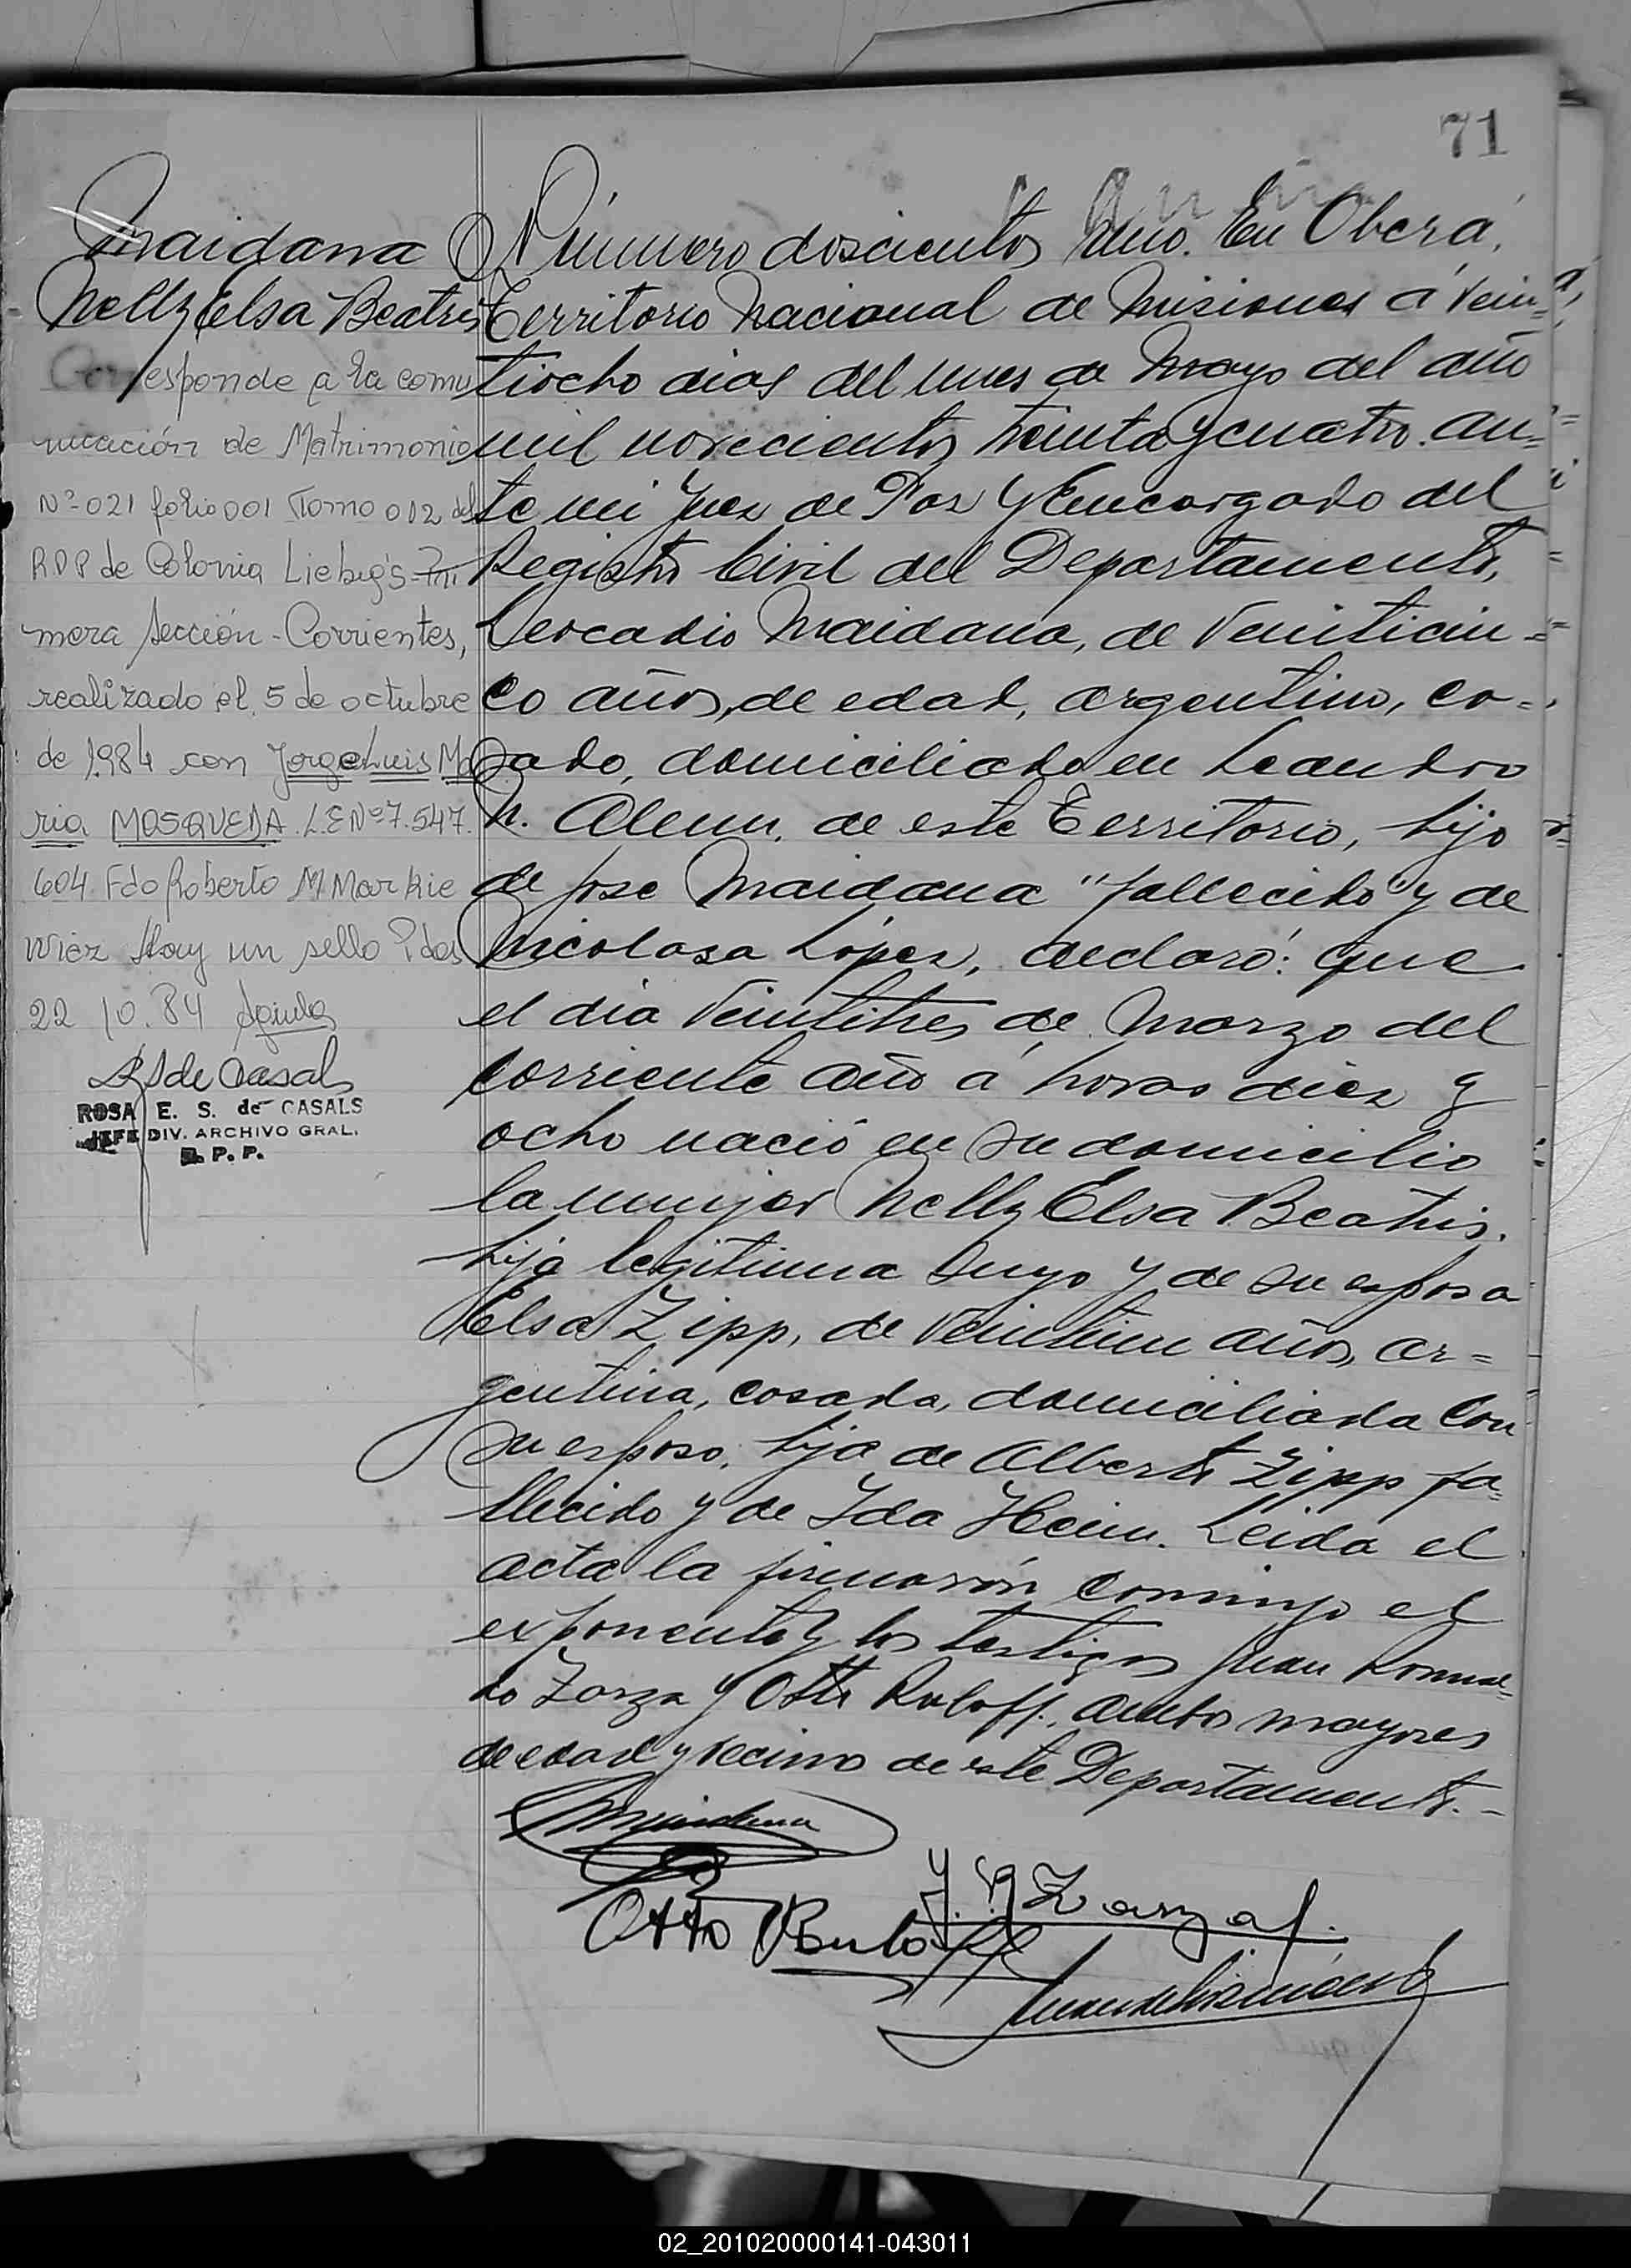 71
Maidana
Nelly Elsa Beatris
Corresponde a la comu
nicación de Matrimonio
Nº 021 folio 001 Tomo 012 del
RDP de Colonia Liebig's Pri
mera Sección - Corrientes,
realizado el 5 de octubre
de 1984 con Jorge Luis Ma
ria MOSQUEDA L.E Nº 7.547.
604 Fdo Roberto M Markie
wicz Hay un sello Pdas
22 10.84
ROSA E. S. de CASALS
JEFE DIV. ARCHIVO GRAL.
P. P.
Número doscientos uno. En Oberá,
Territorio Nacional de Misiones á vein-
tiocho dias del mes de Mayo del año
mil novecientos treinta y cuatro. an-
te mi Juez de Paz y Encargado del
Registro Civil del Departamento,
Leocadio Maidana, de Veinticin-
co años, de edad, argentino, ca-
sado, domiciliado en Leandro
N. Alem, de este Territorio, hijo
de Jose Maidana "fallecido" y de
Nicolasa López, declaró: que
el dia Veintitres de Marzo del
corriente año á horas diez y
ocho nació en su domicilio
la mujer Nelly Elsa Beatris.
hija legitima suya y de su esposa
Elsa Zipp, de Veintiun años, ar=
gentina, casada, domiciliada con
su esposo, hija de Alberto Zipp fa-
llecido y de Ida Heim. Leida el
acta la firmarón conmigo el
exponente y los testigos Juan Romual-
do Zarza y Otto Ruloff, ambos mayores
de edad y vecinos de este Departamento.-
Maidana
J. R. Zarza
Otto Ruloff
02_201020000141-043011